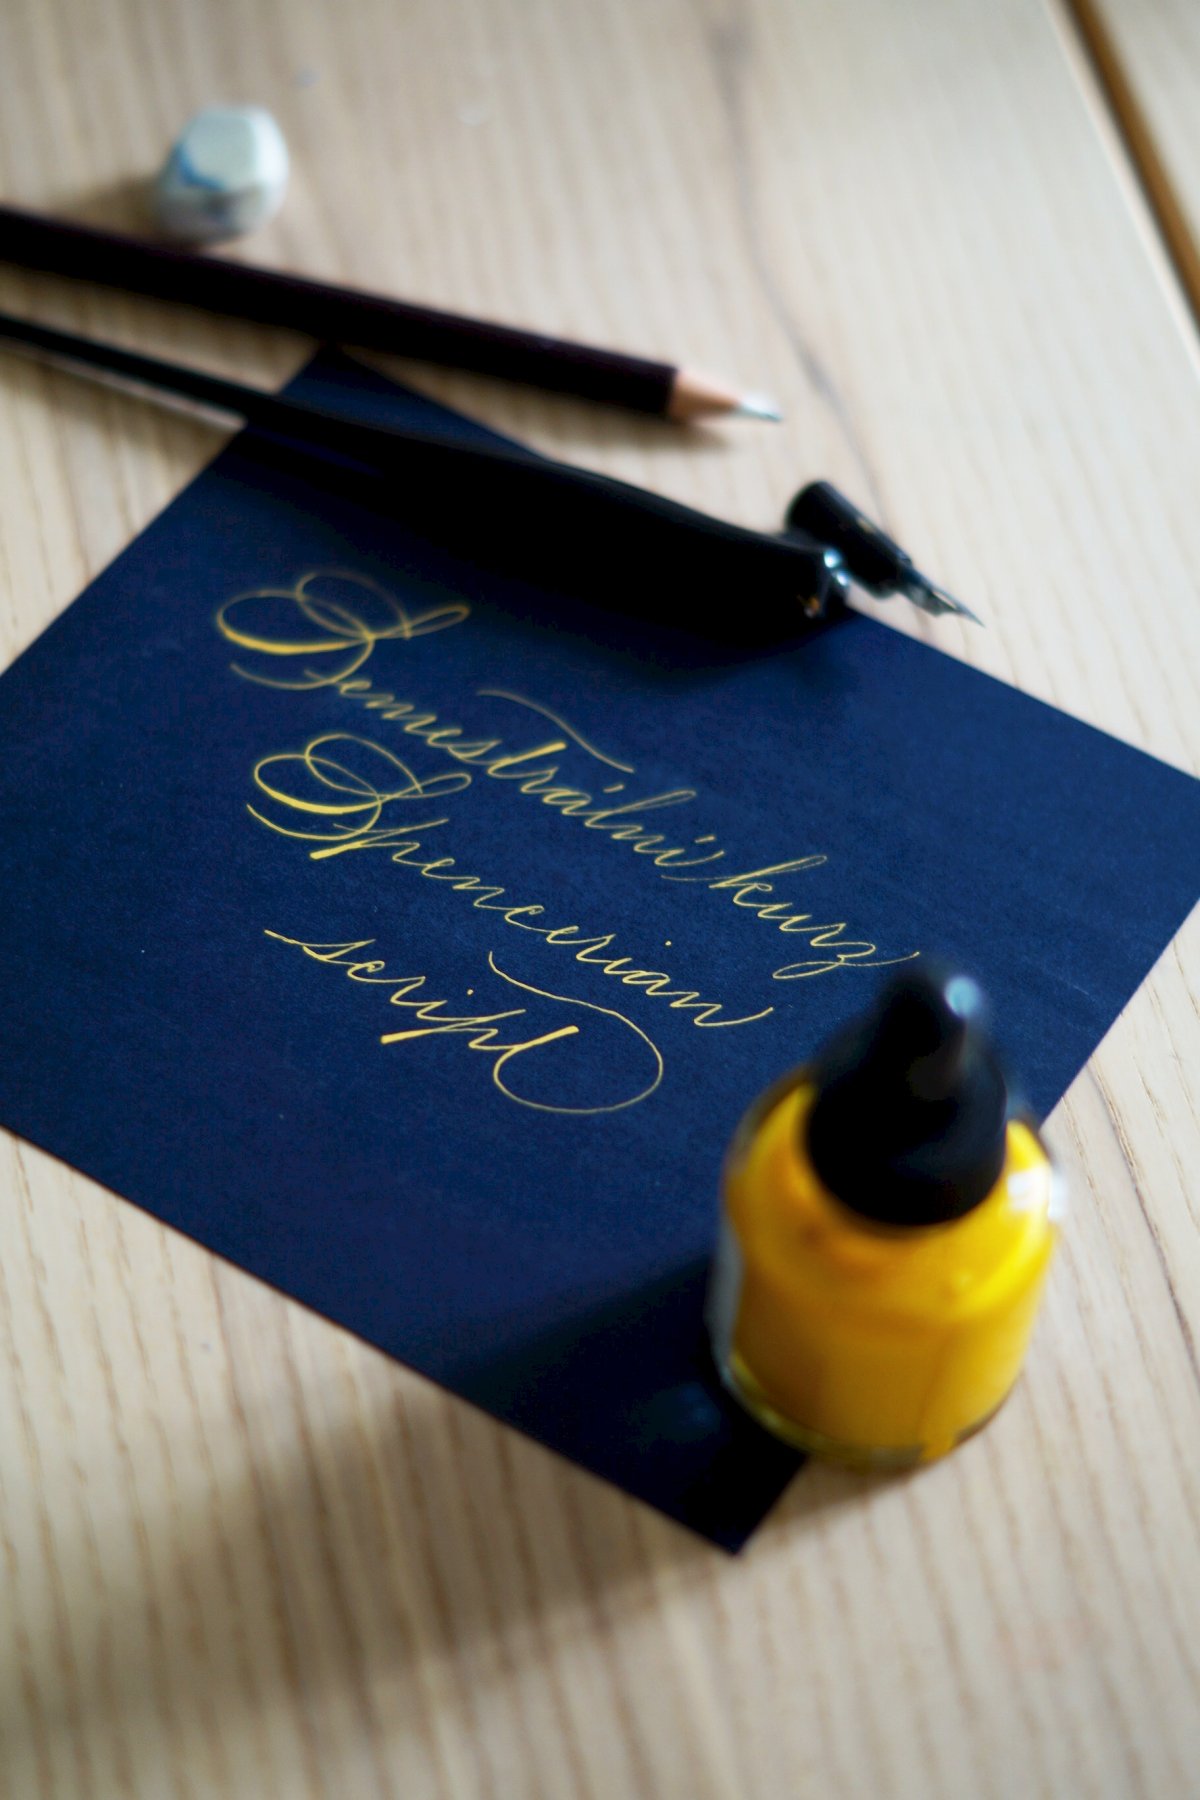 Semestrální kurz
Spencerian
script